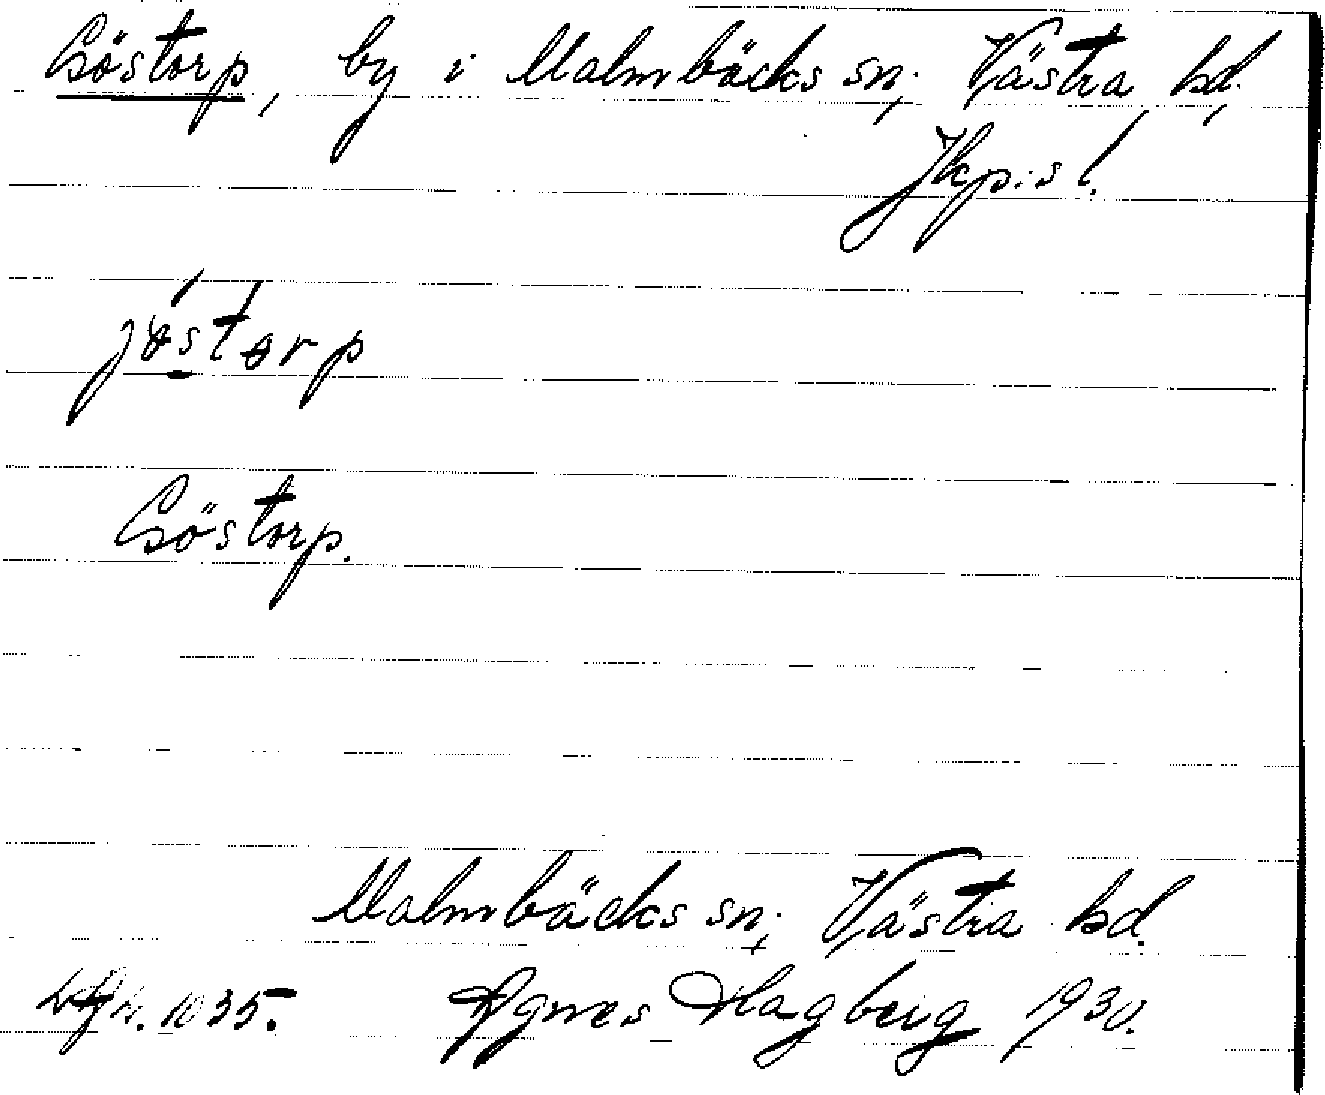 Göstorp, by i Malmbäcks sn, Västra hd,
Jkp:s l.
jöstorp
Göstorp.
Malmbäcks sn, Västra hd.
1035. Agnes Hagberg 1930.